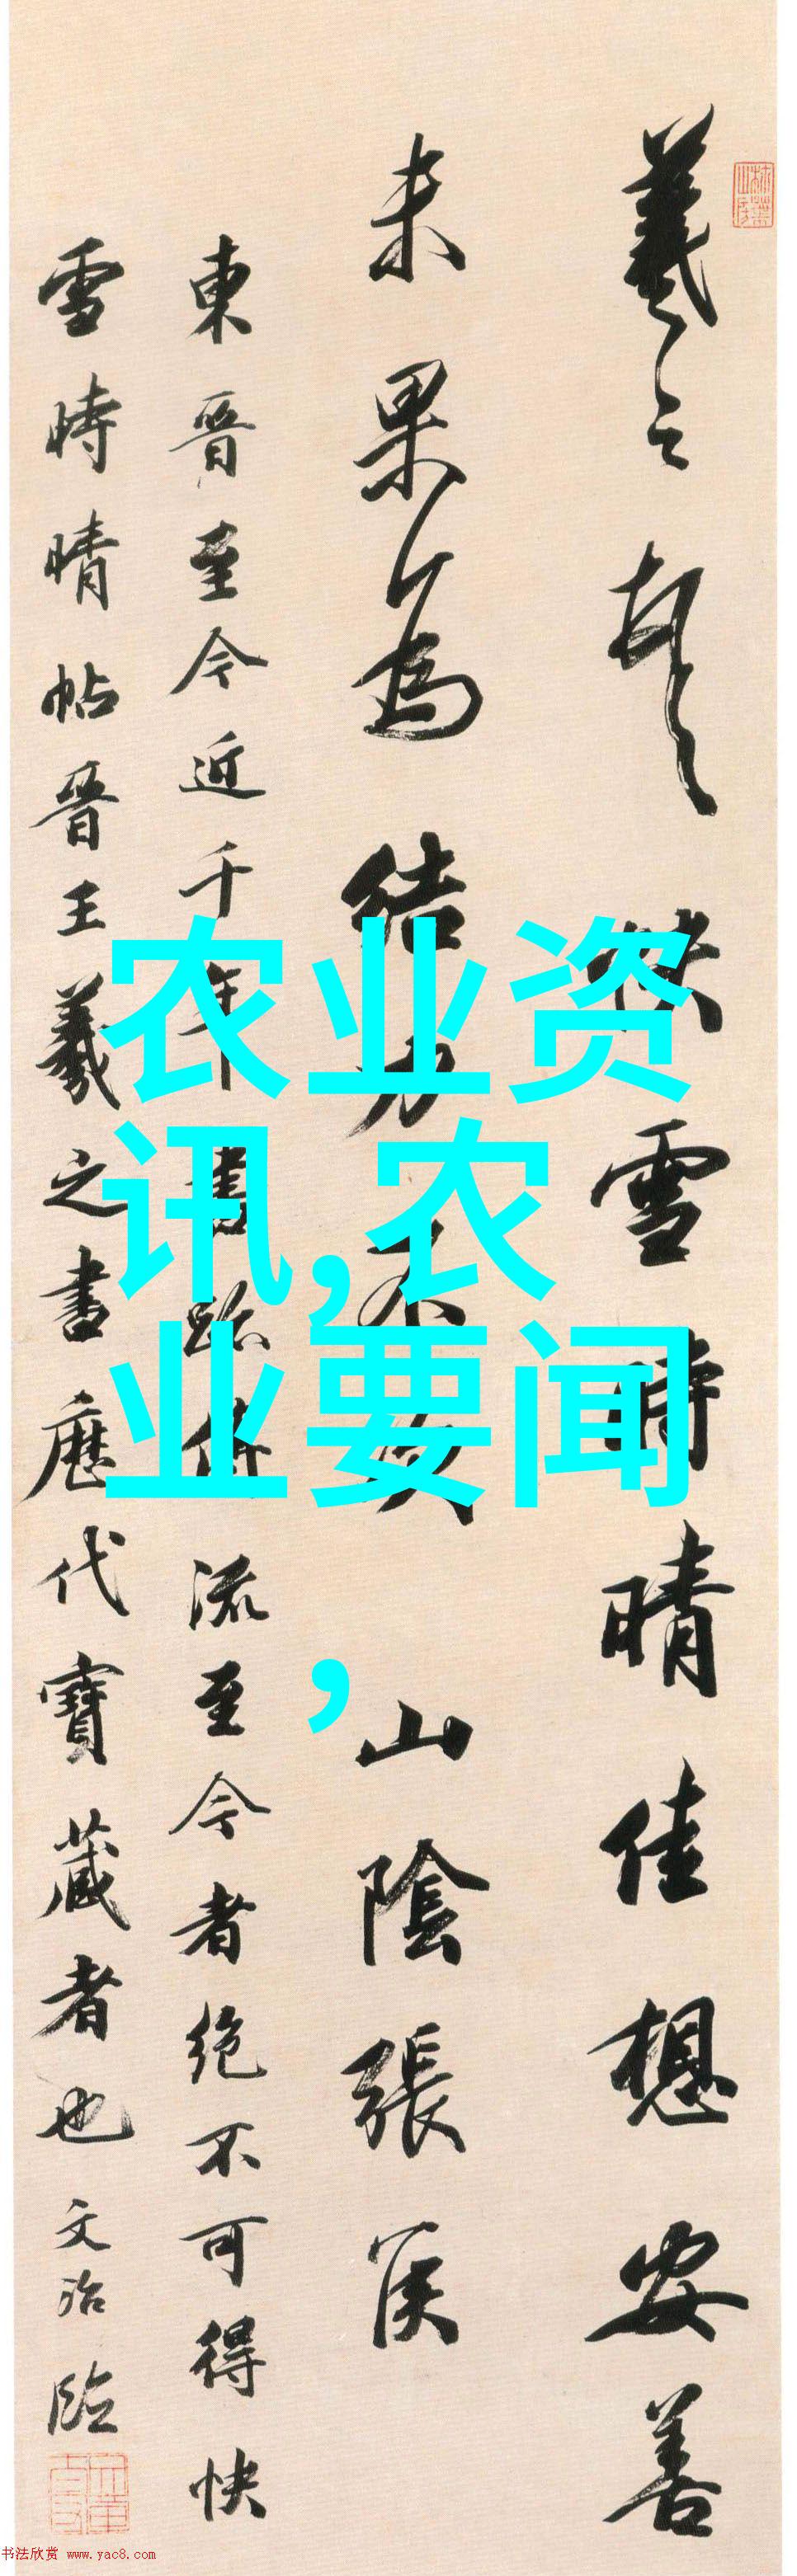 羲之頓首快雪時晴佳想安善
未果為結力不次山陰張侯
東晉至今近千年書跡傳流至今者絶不可得快
雪時晴帖晉王羲之書歷代寶藏者也文治臨
农业资
讯,农
业要闻
,
书法欣赏 www.yac8.com